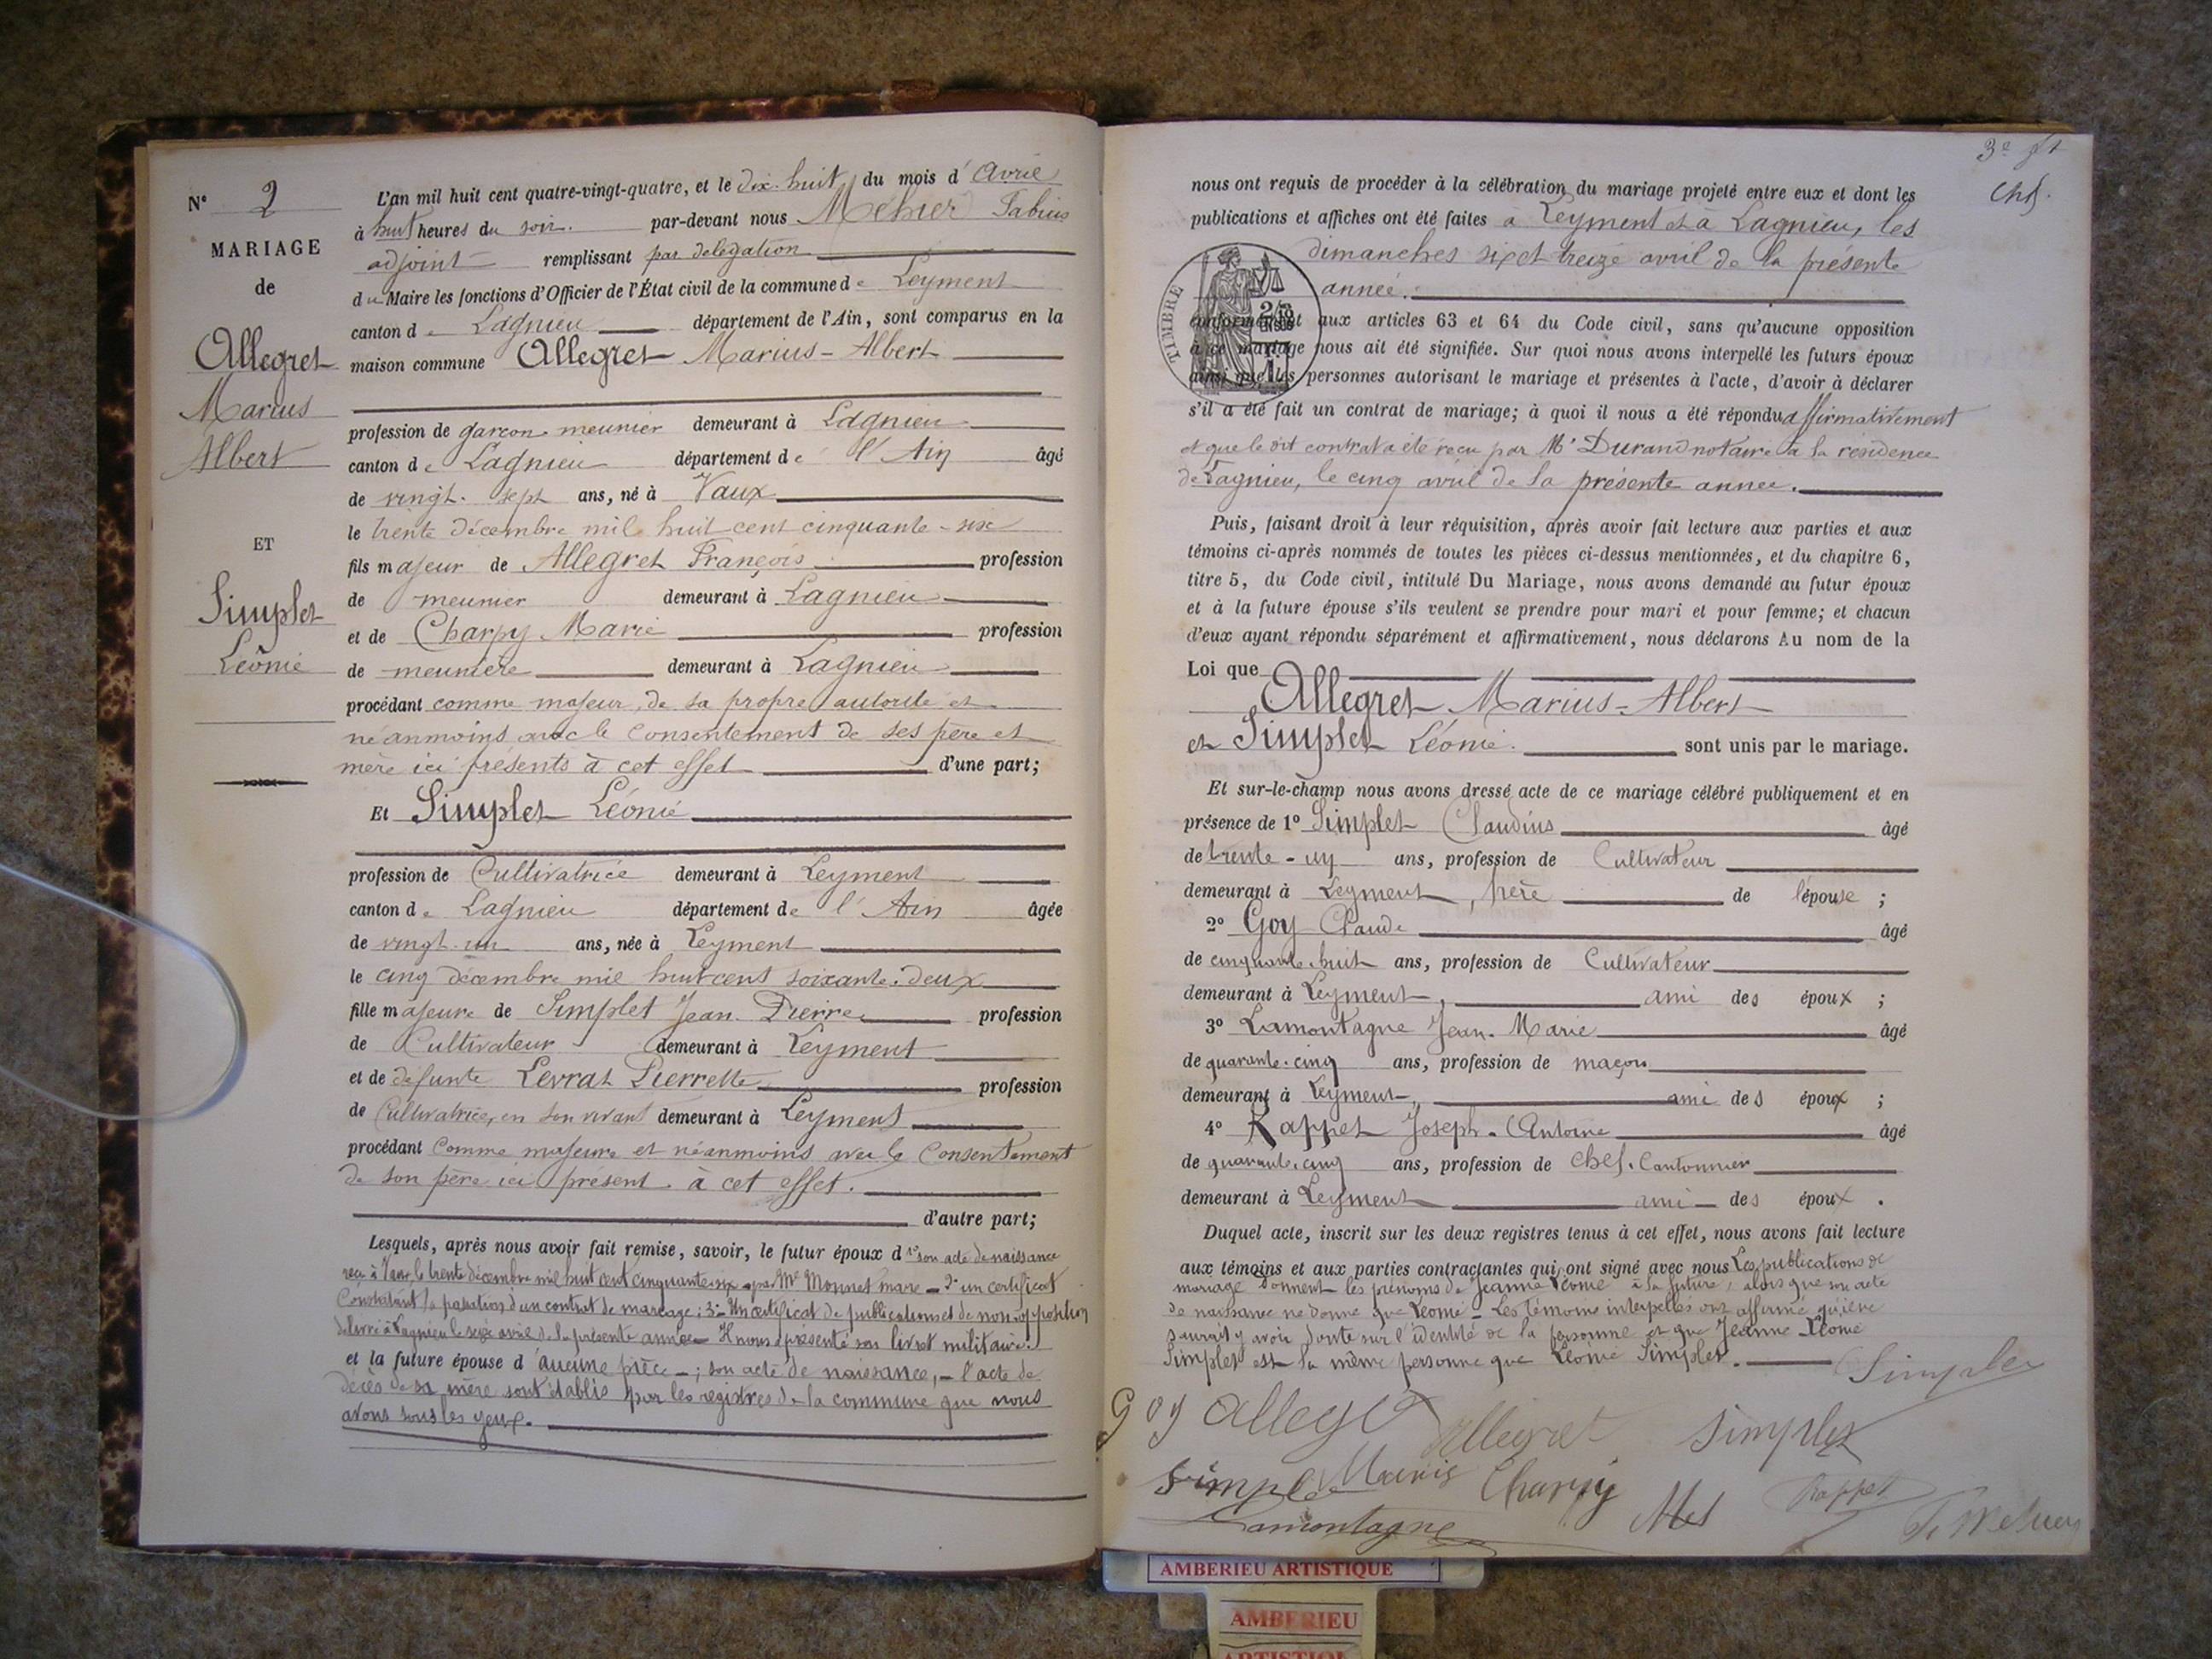 N° 2
MARIAGE
de
Allegret
Marius
Albert
ET
Simplet
Léonie
L'an mil huit cent quatre-vingt-quatre, et le dix-huit du mois d'Avril
à huit heures du soir. par-devant nous Méhier Fabius
adjoint remplissant par délégation
du Maire les fonctions d'Officier de l'État civil de la commune de Leyment
canton de Lagnieu département de l'Ain, sont comparus en la
maison commune Allegret Marius-Albert
profession de garçon meunier demeurant à Lagnieu
canton de Lagnieu département de l'Ain âgé
de vingt-sept ans, né à Vaux
le trente décembre mil huit cent cinquante-six
fils majeur de Allegret François profession
de meunier demeurant à Lagnieu
et de Charpy Marie profession
de meunière demeurant à Lagnieu
procédant comme majeur, de sa propre autorité et
néanmoins avec le consentement de ses père et
mère ici présents à cet effet d'une part;
Et Simplet Léonie
profession de Cultivatrice demeurant à Leyment
canton de Lagnieu département de l'Ain âgée
de vingt-un ans, née à Leyment
le cinq décembre mil huit cent soixante-deux
fille majeure de Simplet Jean-Pierre profession
de Cultivateur demeurant à Leyment
et de défunte Levrat Pierrette profession
de Cultivatrice, en son vivant demeurant à Leyment
procédant comme majeure et néanmoins avec le Consentement
de son père ici présent à cet effet.
d'autre part;
Lesquels, après nous avoir fait remise, savoir, le futur époux d 1° son acte de naissance
reçu à Vaux, le trente décembre mil huit cent cinquante-six par Mr Monnet maire - 2° un certificat
Constatant la passation d'un contrat de mariage; 3° - Un certificat de publications et de non-opposition
délivré à Lagnieu le seize avril de la présente année - Il nous a présenté son livret militaire.
et la future épouse d'aucune pièce -; son acte de naissance, - l'acte de
décès de sa mère sont établis par les registres de la commune que nous
avons sous les yeux.
3e ft
nous ont requis de procéder à la célébration du mariage projeté entre eux et dont les
publications et affiches ont été faites à Leyment et à Lagnieu, les
dimanches six et treize avril de la présente
année.
TIMBRE
conformément aux articles 63 et 64 du Code civil, sans qu'aucune opposition
à ce mariage nous ait été signifiée. Sur quoi nous avons interpellé les futurs époux
ainsi que les personnes autorisant le mariage et présentes à l'acte, d'avoir à déclarer
s'il a été fait un contrat de mariage; à quoi il nous a été répondu affirmativement
et que le dit contrat a été reçu par Me Durand notaire à la résidence
de Lagnieu, le cinq avril de la présente année.
Puis, faisant droit à leur réquisition, après avoir fait lecture aux parties et aux
témoins ci-après nommés de toutes les pièces ci-dessus mentionnées, et du chapitre 6,
titre 5, du Code civil, intitulé Du Mariage, nous avons demandé au futur époux
et à la future épouse s'ils veulent se prendre pour mari et pour femme; et chacun
d'eux ayant répondu séparément et affirmativement, nous déclarons Au nom de la
Loi que
Allegret Marius-Albert
et Simplet Léonie. sont unis par le mariage.
Et sur-le-champ nous avons dressé acte de ce mariage célébré publiquement et en
présence de 1° Simplet Claudius âgé
de trente-un ans, profession de Cultivateur
demeurant à Leyment, frère de l'épouse ;
2° Goy Claude âgé
de cinquante-huit ans, profession de Cultivateur
demeurant à Leyment, ami des époux ;
3° Lamontagne Jean-Marie âgé
de quarante-cinq ans, profession de maçon
demeurant à Leyment, ami des époux ;
4° Rappet Joseph-Antoine âgé
de quarante-cinq ans, profession de chef-Cantonnier
demeurant à Leyment ami des époux .
Duquel acte, inscrit sur les deux registres tenus à cet effet, nous avons fait lecture
aux témoins et aux parties contractantes qui ont signé avec nous Les publications de
mariage donnent les prénoms de Jeanne Léonie à la future, alors que son acte
de naissance ne donne que Léonie - Les témoins interpellés ont affirmé qu'il ne
saurait y avoir doute sur l'identité de la personne et que Jeanne Léonie
Simplet est la même personne que Léonie Simplet.
Simplet
Goy Allegret Allegret Simplet
Simplet Marie Charpy Rappet
Lamontagne F. Mehier
AMBERIEU ARTISTIQUE
AMBERIEU
ARTISTIQUE